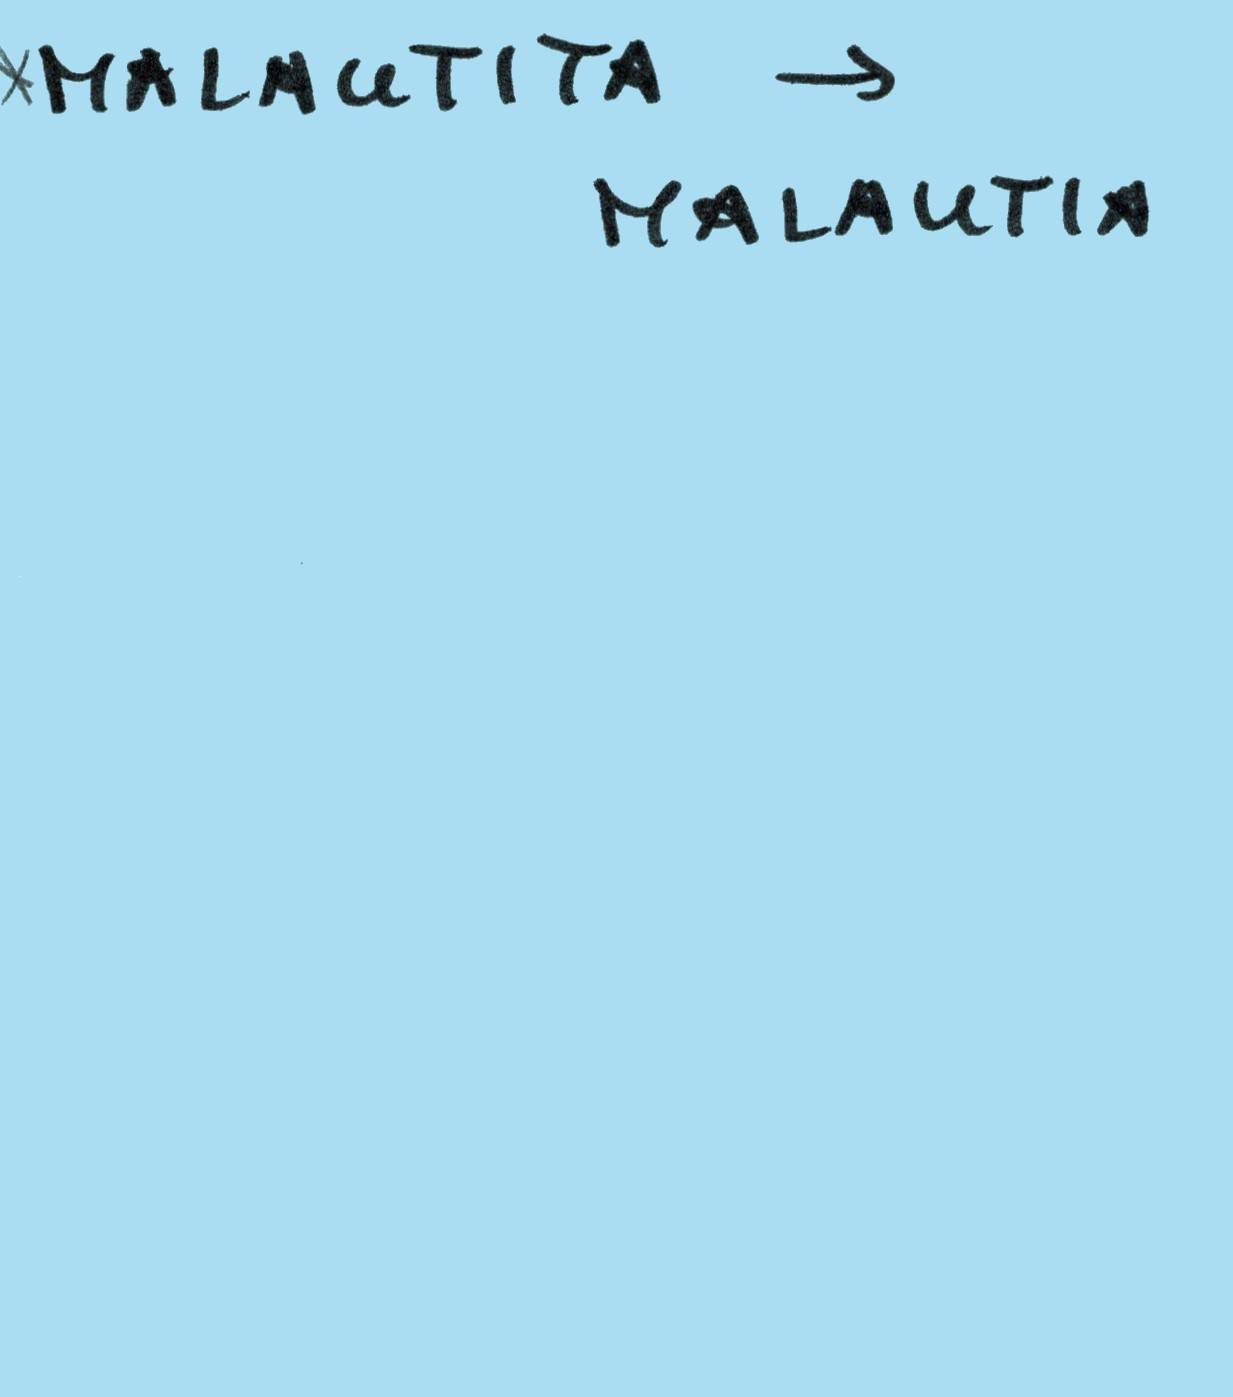 *MALAUTITA →
MALAUTIA